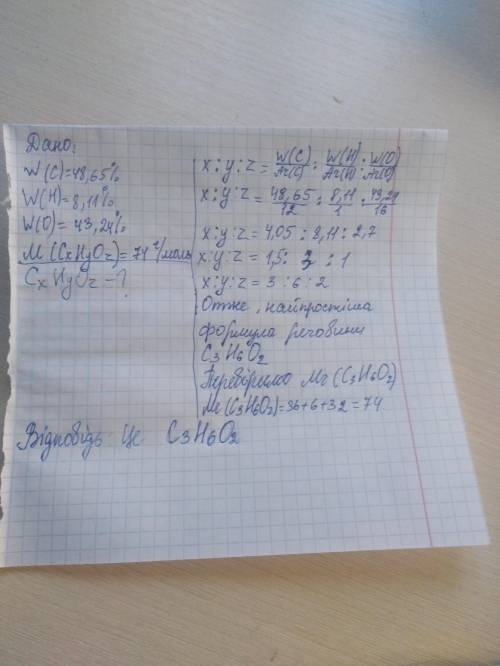 Дано:
W(C)=48,65%
W(H)=8,11%
W(O)=43,24%
M(CxHyOz)=74 г/моль
CxHyOz-?
x:y:z = W(C)/Ar(C) : W(H)/Ar(H) : W(O)/Ar(O)
x:y:z = 48,65/12 : 8,11/1 : 43,24/16
x:y:z = 4,05 : 8,11 : 2,7
x:y:z = 1,5 : 3 : 1
x:y:z = 3 : 6 : 2
Отже, найпростіша
формула речовини
C3H6O2
Перевіримо Mr(C3H6O2)
Mr(C3H6O2)=36+6+32=74
Відповідь: Це C3H6O2